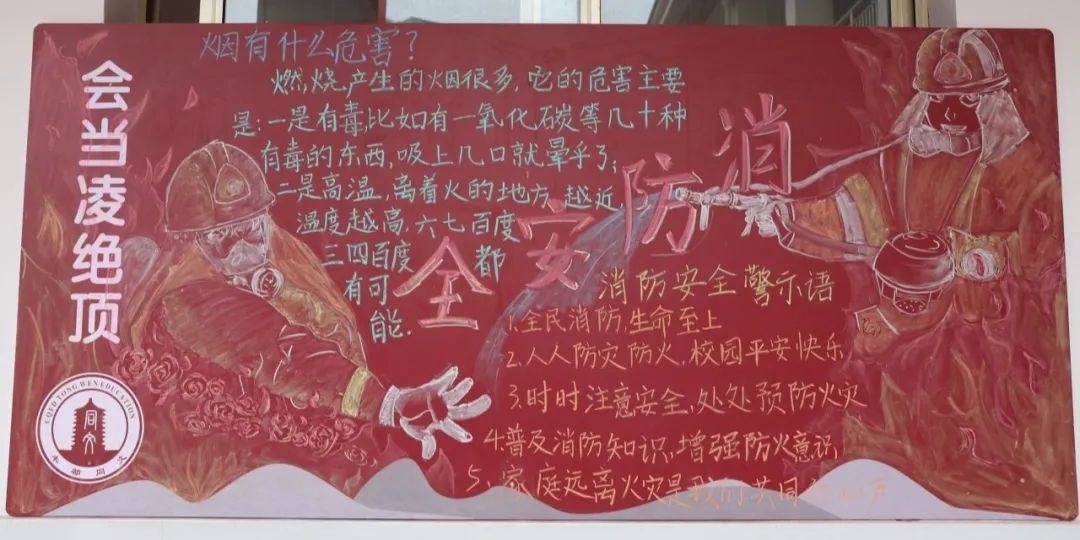 会当凌绝顶
烟有什么危害?
燃烧产生的烟很多,它的危害主要
是:一是有毒,比如有一氧化碳等几十种
有毒的东西,吸上几口就晕乎了;
二是高温,离着火的地方 越近,
温度越高,六七百度
三四百度 都
有可
能.
消防安全
消防安全警示语
1.全民消防,生命至上
2.人人防灾防火,校园平安快乐
3.时时注意安全,处处预防火灾
4.普及消防知识,增强防火意识
5、家庭远离火灾是我们共同
CQFD TONG WEN EDUCATION
同文
丰都同文